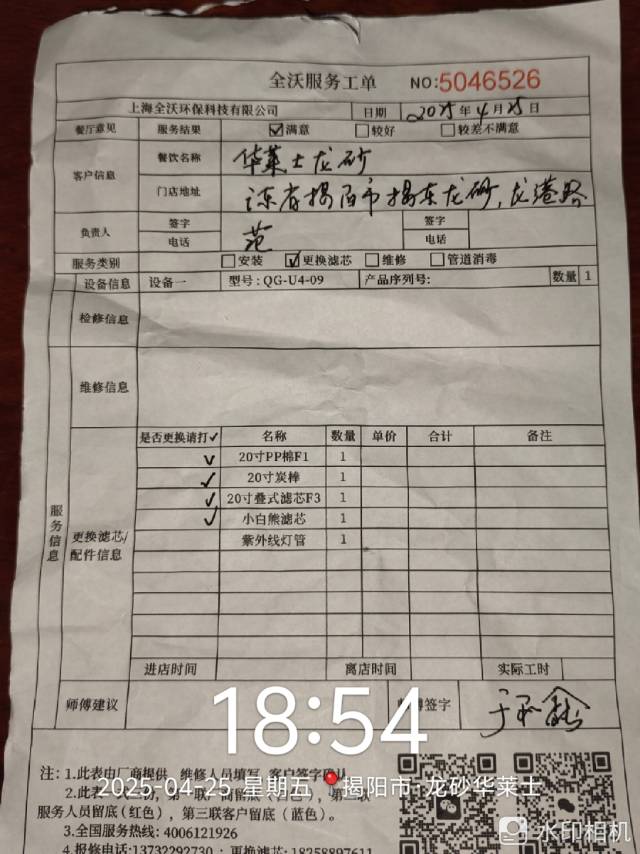 全沃服务工单 NO:5046526
上海全沃环保科技有限公司 日期 2025年4月25日
餐厅意见 服务结果 ☑满意 □较好 □较差不满意
客户信息 餐饮名称 华莱士龙砂
门店地址 东省揭阳市揭东龙砂,龙港路
负责人 签字 范 签字
电话 电话
服务类别 □安装 ☑更换滤芯 □维修 □管道消毒
设备信息 设备一 型号:QG-U4-09 产品序列号: 数量 1
检修信息
维修信息
服务信息
更换滤芯/配件信息
是否更换请打✓ 名称 数量 单价 合计 备注
✓ 20寸PP棉F1 1
✓ 20寸炭棒 1
✓ 20寸叠式滤芯F3 1
✓ 小白熊滤芯 1
紫外线灯管 1
进店时间 离店时间 实际工时
师傅建议 签字
18:54
注:1.此表由厂商提供 维修人员填写 客户签字确认
2025-04-25 星期五 揭阳市·龙砂华莱士
2.此表
服务人员留底(红色),第三联客户留底(蓝色)。
3.全国服务热线: 4006121926
4.报修电话:13732292730 ; 更换滤芯:18258897611
水印相机